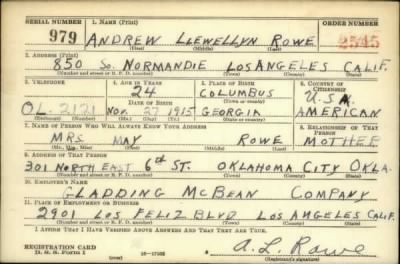 SERIAL NUMBER 1. NAME (Print) ORDER NUMBER
979 ANDREW LLEWELLYN ROWE 2545
(First) (Middle) (Last)
2. ADDRESS (Print)
850 So. NORMANDIE LOS ANGELES CALIF.
(Number and street or R. F. D. number) (Town) (County) (State)
3. TELEPHONE 4. AGE IN YEARS 5. PLACE OF BIRTH 6. COUNTRY OF CITIZENSHIP
24 COLUMBUS U.S.A.
DATE OF BIRTH (Town or county)
OL-2121 Nov. 27 1915 GEORGIA AMERICAN
(Exchange) (Number) (Mo.) (Day) (Yr.) (State or country)
7. NAME OF PERSON WHO WILL ALWAYS KNOW YOUR ADDRESS 8. RELATIONSHIP OF THAT PERSON
MRS. MAY ROWE MOTHER
(Mr., Mrs., Miss) (First) (Middle) (Last)
9. ADDRESS OF THAT PERSON
301 NORTH EAST 6th ST. OKLAHOMA CITY OKLA.
(Number and street or R. F. D. number) (Town) (County) (State)
10. EMPLOYER'S NAME
GLADDING McBEAN COMPANY
11. PLACE OF EMPLOYMENT OR BUSINESS
2901 LOS FELIZ BLVD LOS ANGELES CALIF.
(Number and street or R. F. D. number) (Town) (County) (State)
I AFFIRM THAT I HAVE VERIFIED ABOVE ANSWERS AND THAT THEY ARE TRUE.
REGISTRATION CARD
D. S. S. Form 1 A. L. Rowe